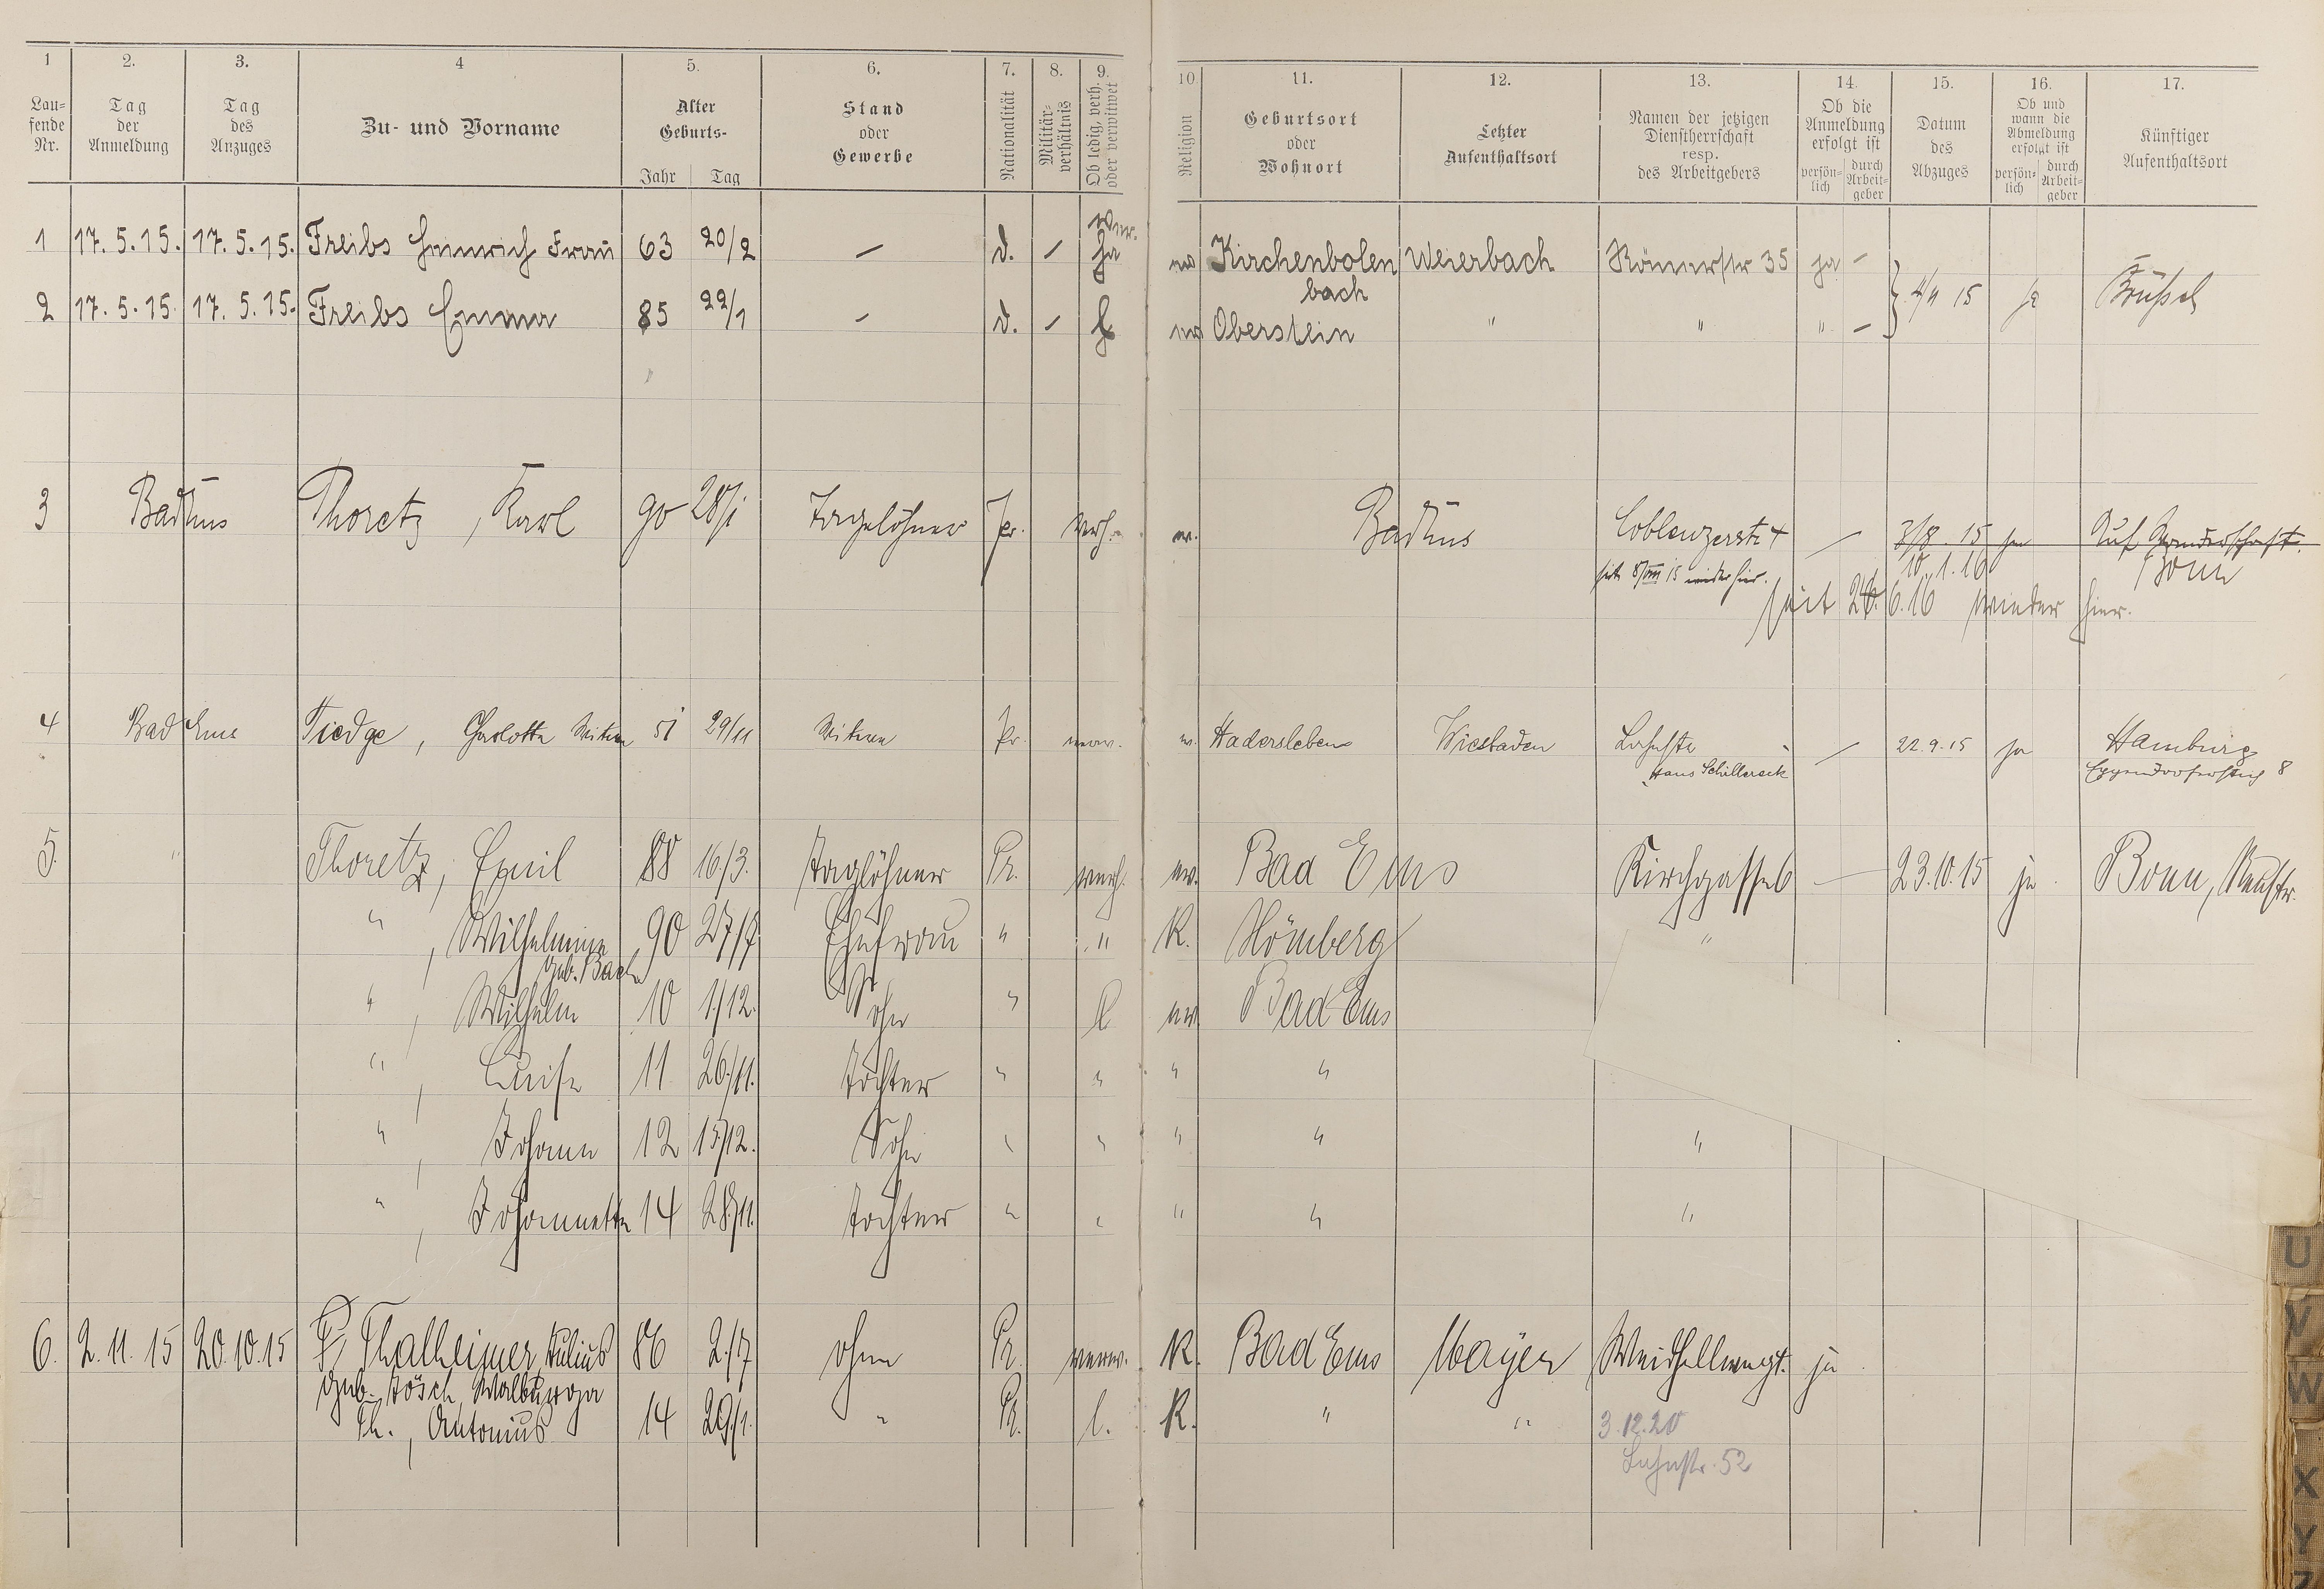 1 2. 3. 4 5. 6. 7. 8. 9. 10 11. 12. 13. 14. 15. 16. 17.
Lau-
fende
Nr.
Tag
der
Anmeldung
Tag
des
Anzuges
Zu- und Vorname
Alter
Geburts-
Jahr Tag
Stand
oder
Gewerbe
Nationalität
Militär-
verhältnis
Ob ledig, verh.
oder verwitwet
Religion
Geburtsort
oder
Wohnort
Letzter
Aufenthaltsort
Namen der jetzigen
Dienstherrschaft
resp.
des Arbeitgebers
Ob die
Anmeldung
erfolgt ist
persön-
lich
durch
Arbeit-
geber
Datum
des
Abzuges
Ob und
wann die
Abmeldung
erfolgt ist
persön-
lich
durch
Arbeit-
geber
Künftiger
Aufenthaltsort
1 17.5.15. 17.5.15. Treibs Heinrich Frau 63 20/2 — d. — ev Kirchenbolen Weierbach Römerstr 35 ja —
bach
2 17.5.15. 17.5.15. Treibs Emma 85 22/1 — d. — l ev Oberstein " " " — } 4/11 15 ja Brüssel
3 Bad Ems Thoretz, Karl 90 28/1 Tagelöhner Pr. verh. ev. Bad Ems Coblenzerstr 4 — 3/8. 15 ja Auf Wanderschaft.
seit 8/VIII 15 wieder hier. 10.1.16 Bonn
seit 26.6.16 wieder hier.
4 Bad Ems Tiedge, Charlotte Witwe 51 29/11 Witwe Pr. verw. ev. Hadersleben Wiesbaden Lahnstr — 22.9.15 ja Hamburg
Haus Schillereck Eppendorferstieg 8
5. " Thoretz, Emil 88 16/3. Taglöhner Pr. verh. ev. Bad Ems Kirchgasse 6 — 23.10.15 ja. Bonn,
", Wilhelmine 90 27/7 Ehefrau " " K. Hömberg "
geb. Bach
", Wilhelm 10 1/12. Sohn " l ev Bad Ems
", Luise 11 26/11. Tochter " " " "
", Johann 12 15/12. Sohn " " " " "
", Johannette 14 28/11. Tochter " " " " "
6. 2.11.15 20.10.15 Fr. Thalheimer, Julius 86 2./7 ohne Pr. verw. K. Bad Ems Mayen Weidhellwegt. ja
geb. Tösch, Walburga
Th., Antonius 14 29/1. " Pr. l. K. " " 3.12.20
Lahnstr. 52
U
V
W
X
Y
Z